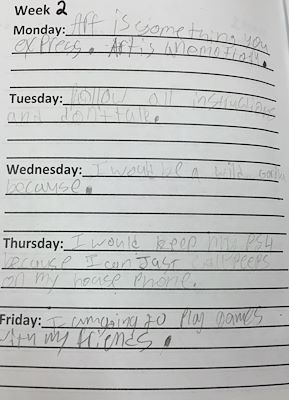 Week 2
Monday: Art is something you
express. Art is an emotion.
Tuesday: follow all instructions
and don't talk.
Wednesday: I would be a wild
because.
Thursday: I would keep my PS4
because I can Just call peeps
on my house phone.
Friday: I am going to Play games
with my friends.